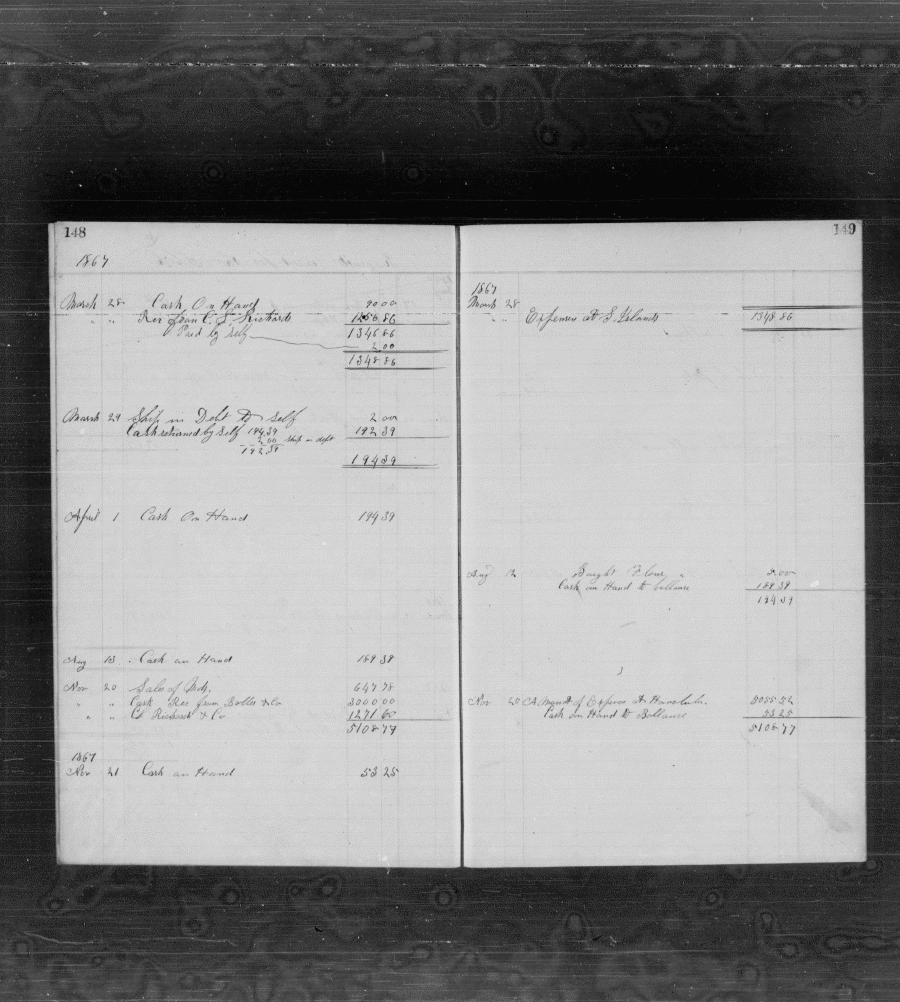 148
1867
March 28 Cash On Hand 90 00
" " Rec from C. S. Richards 1256 86
1346 86
Paid by Self 2 00
1348 86
March 29 Ship in Debt To Self 2 00
Cash returned by Self 194.39 192 39
2 00 Ship in debt
192.39
194 39
April 1 Cash On Hand 194 39
Aug 13 Cash on Hand 189 39
Nov 20 Sales of 647 78
" " Cash Rec from Bolles & Co 3000 00
" " & Co 1271 60
5108 77
1867
Nov 21 Cash on Hand 53 25
149
1867
March 28
" " Expenses at S. Islands 1348 86
Aug 12 Bought Flour 5 00
Cash on Hand to ballance 189 39
194 39
Nov 20 of Expenses At Honolulu. 5055 52
Cash on Hand to Ballance 53 25
5108 77